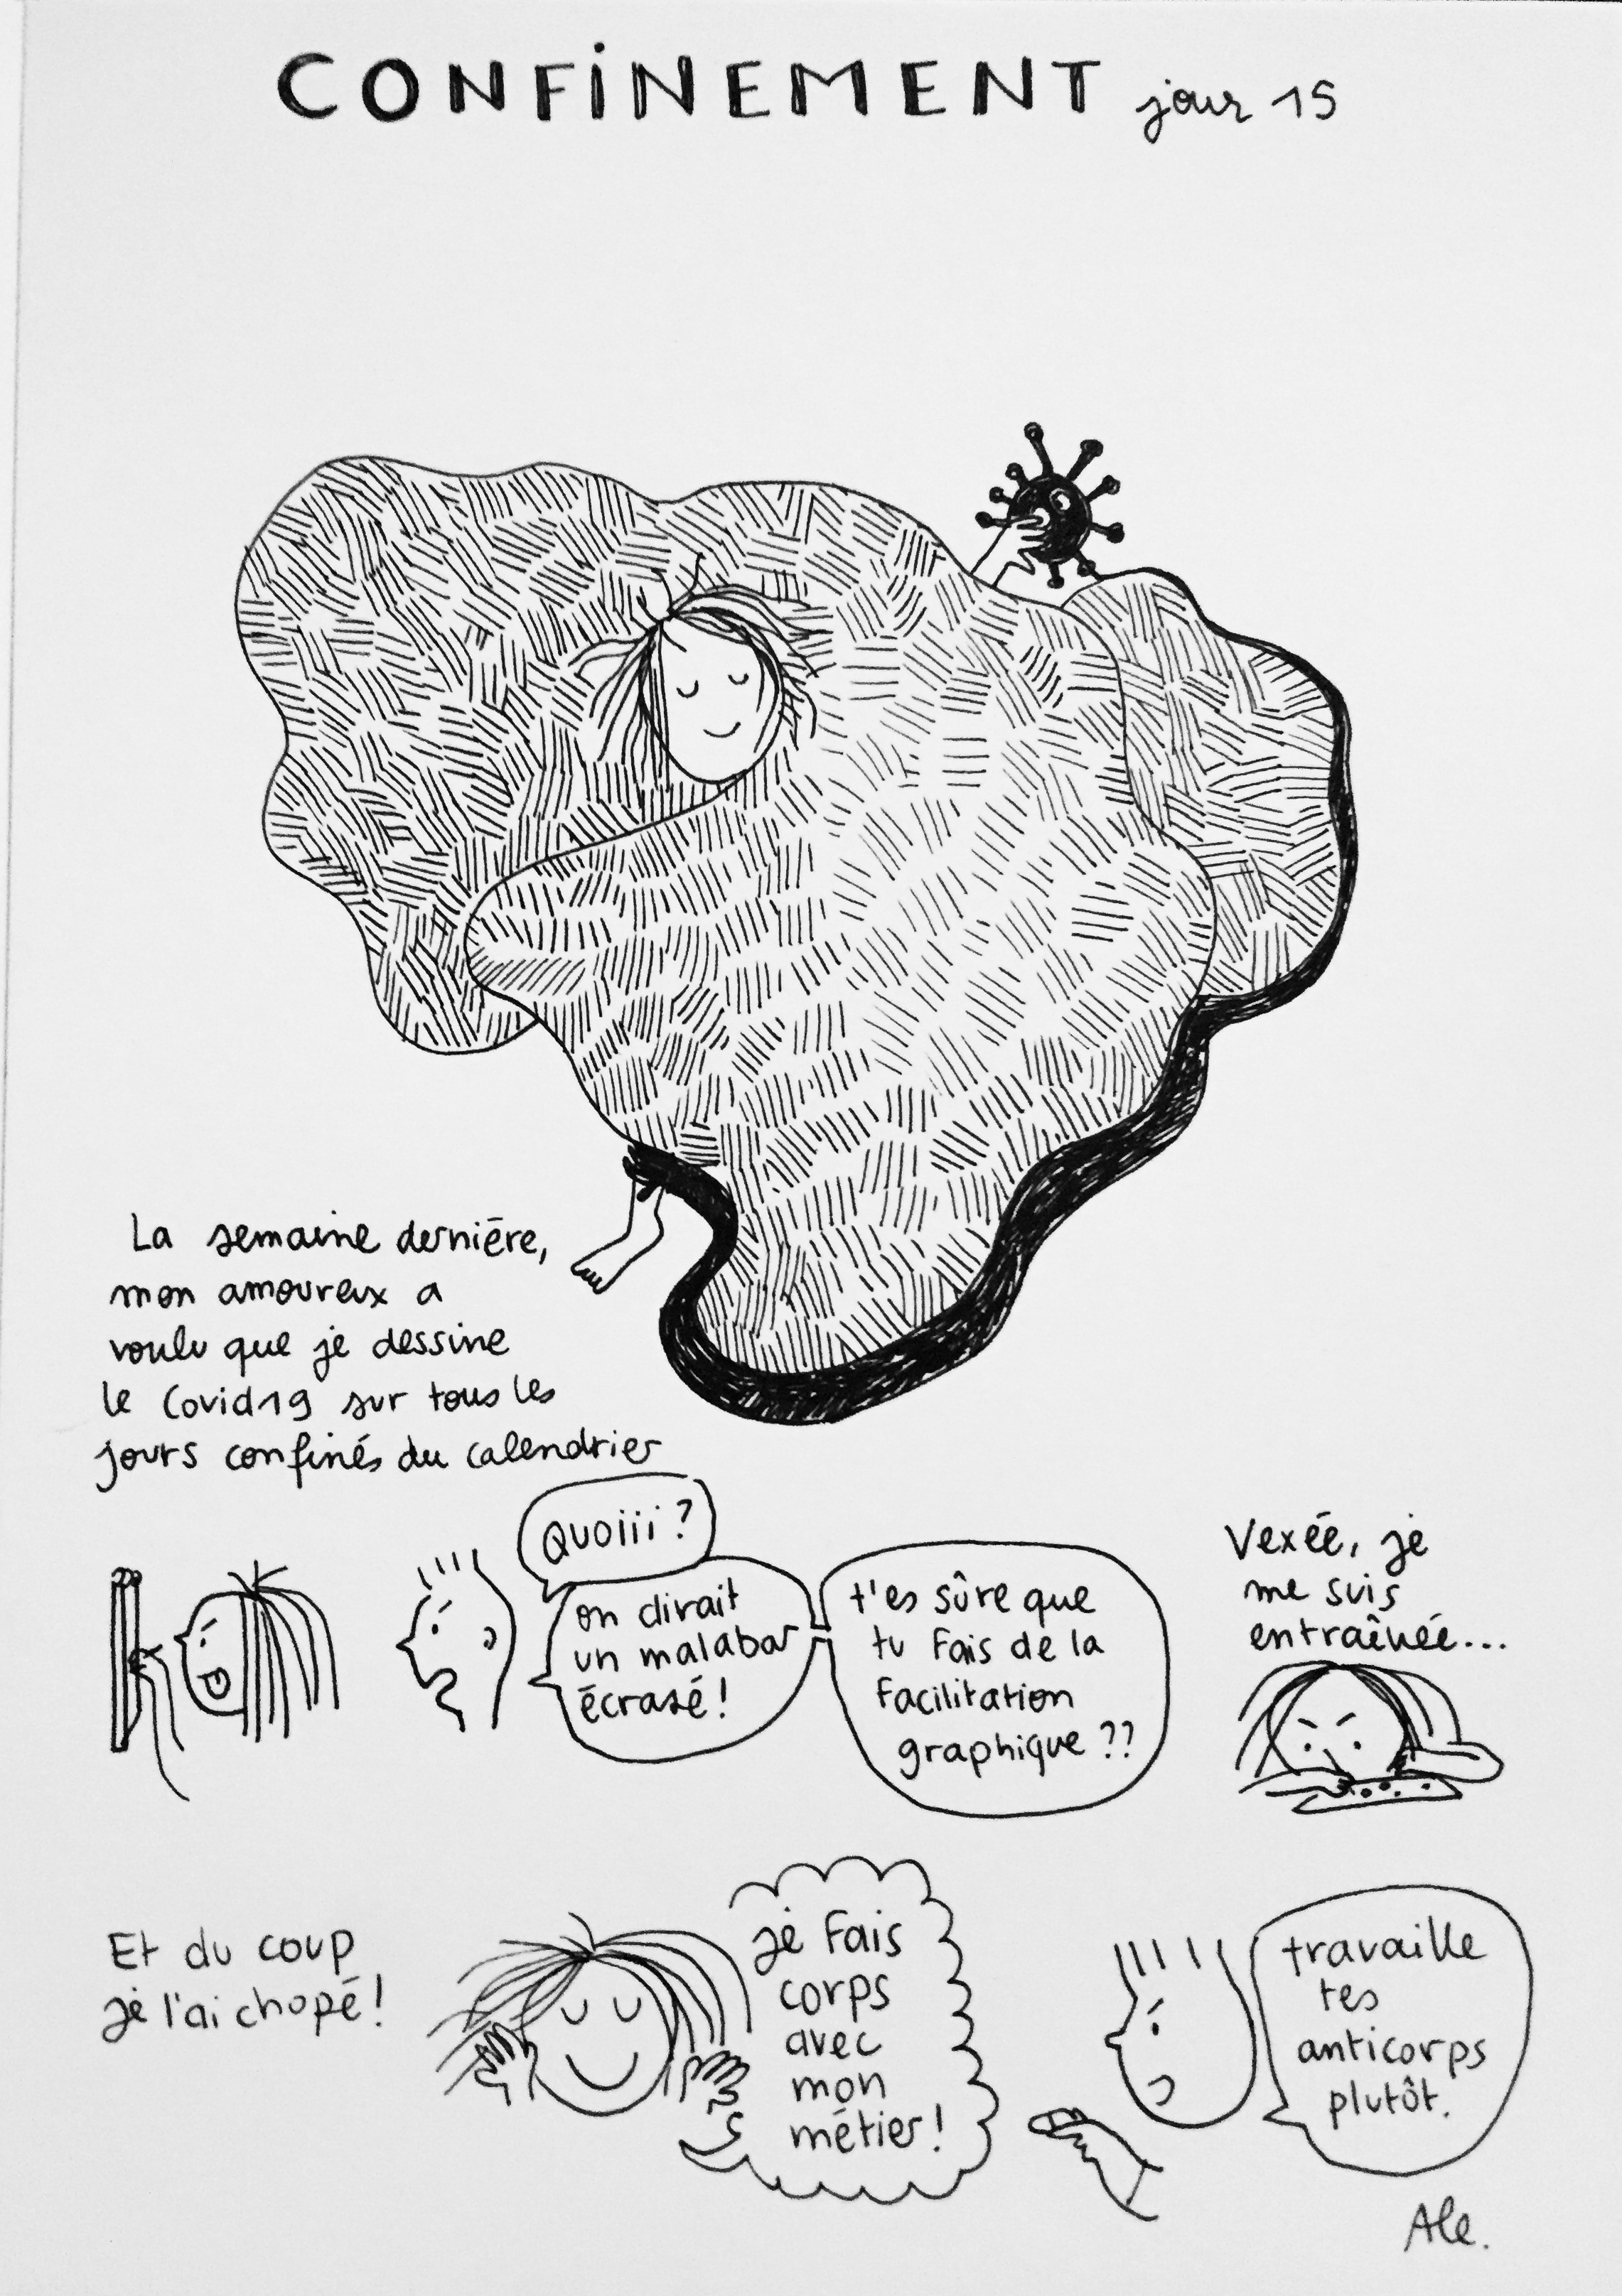 CONFiNEMENT jour 15
La semaine dernière,
mon amoureux a
voulu que je dessine
le Covid19 sur tous les
jours confinés du calendrier
Quoiii ?
on dirait
un malabar
écrasé !
t'es sûre que
tu fais de la
facilitation
graphique ??
Vexée, je
me suis
entraînée...
Et du coup
je l'ai chopé !
je fais
corps
avec
mon
métier !
travaille
tes
anticorps
plutôt.
Ale.